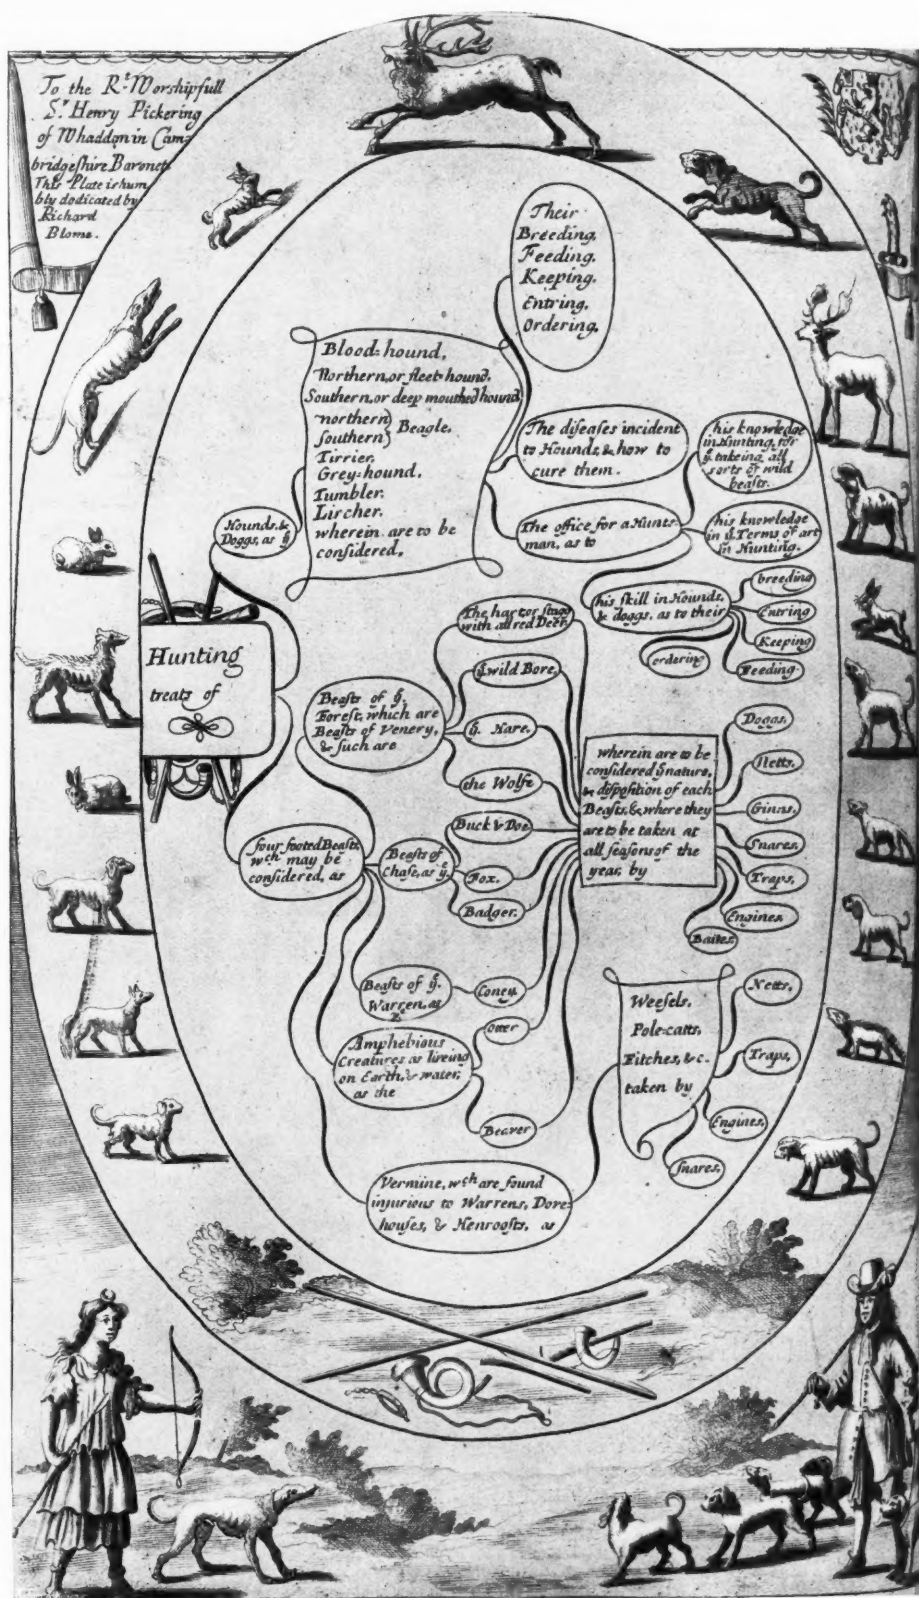 To the Rt. Worshipfull
Sr. Henry Pickering
of Whaddon in Cam=
bridgeſhire Baronet
This Plate is hum
bly dodicated by
Richard
Blome.
Hunting
treats of
Hounds, &
Doggs, as yͤ
Blood=hound,
Northern, or fleet=hound.
Southern, or deep mouthed hound
northern
ſouthern } Beagle.
Tirrier.
Grey=hound.
Tumbler.
Lircher.
wherein are to be
conſidered,
Their
Breeding.
Feeding.
Keeping.
Entring.
Ordering.
The diſeaſes incident
to Hounds, & how to
cure them.
The office for a Hunts=
man, as to
his knowledge
in Hunting, for
yͤ takeing all
sorts of wild
beaſts.
his knowledge
in yͤ Terms of art
in Hunting.
his skill in Hounds,
& doggs, as to their
breeding
Entring
Keeping
Feeding.
ordering
four footed Beaſts,
wch may be
conſidered, as
Beaſts of yͤ
Foreſt, which are
Beaſts of Venery,
& ſuch are
The hart or ſtagg
with all red Deer.
yͤ wild Bore,
yͤ Hare.
the Wolfe
Beaſts of
Chaſe, as yͤ
Buck & Doe
Fox.
Badger.
Beaſts of yͤ
Warren, as
yͤ
Coney
Amphebious
Creatures as liveing
on Earth, & water,
as the
Otter
Beaver
wherein are to be
conſidered yͤ nature,
& diſpoſition of each
Beaſts, & where they
are to be taken at
all ſeaſons of the
year, by
Doggs,
Netts.
Ginns.
Snares.
Traps,
Engines.
Baites.
Vermine, wch are found
injurious to Warrens, Dove=
houſes, & Henrooſts, as
Weeſels,
Pole=catts,
Fitches, & c.
taken by
Netts,
Traps,
Engines,
ſnares.